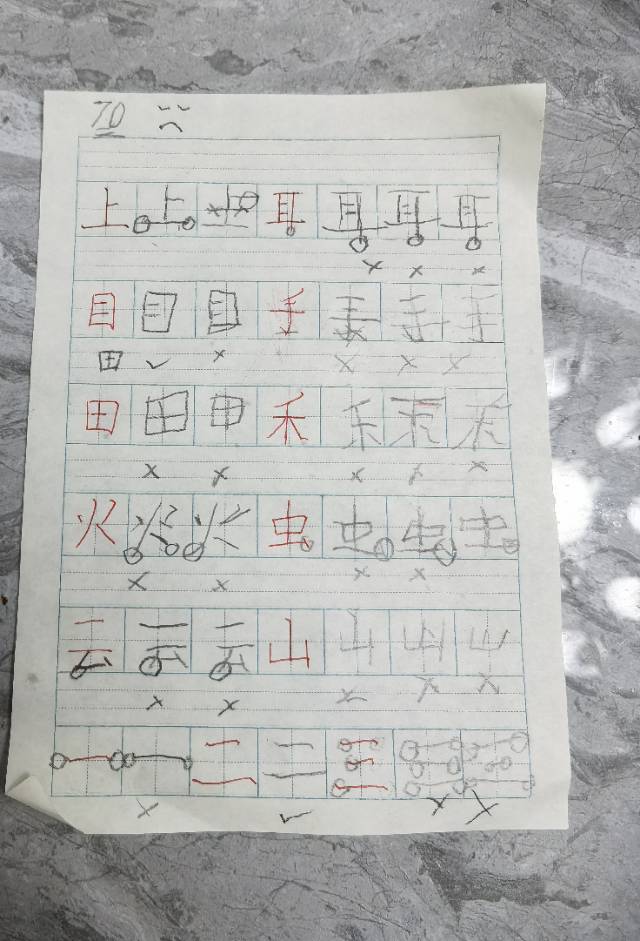 70
上 上 上 耳 耳 耳 耳
目 目 目 手 手 手 手
田
田 田 田 禾 禾 禾 禾
火 火 火 虫 虫 虫 虫
云 云 云 山 山 山 山
一 一 二 二 三 三 三